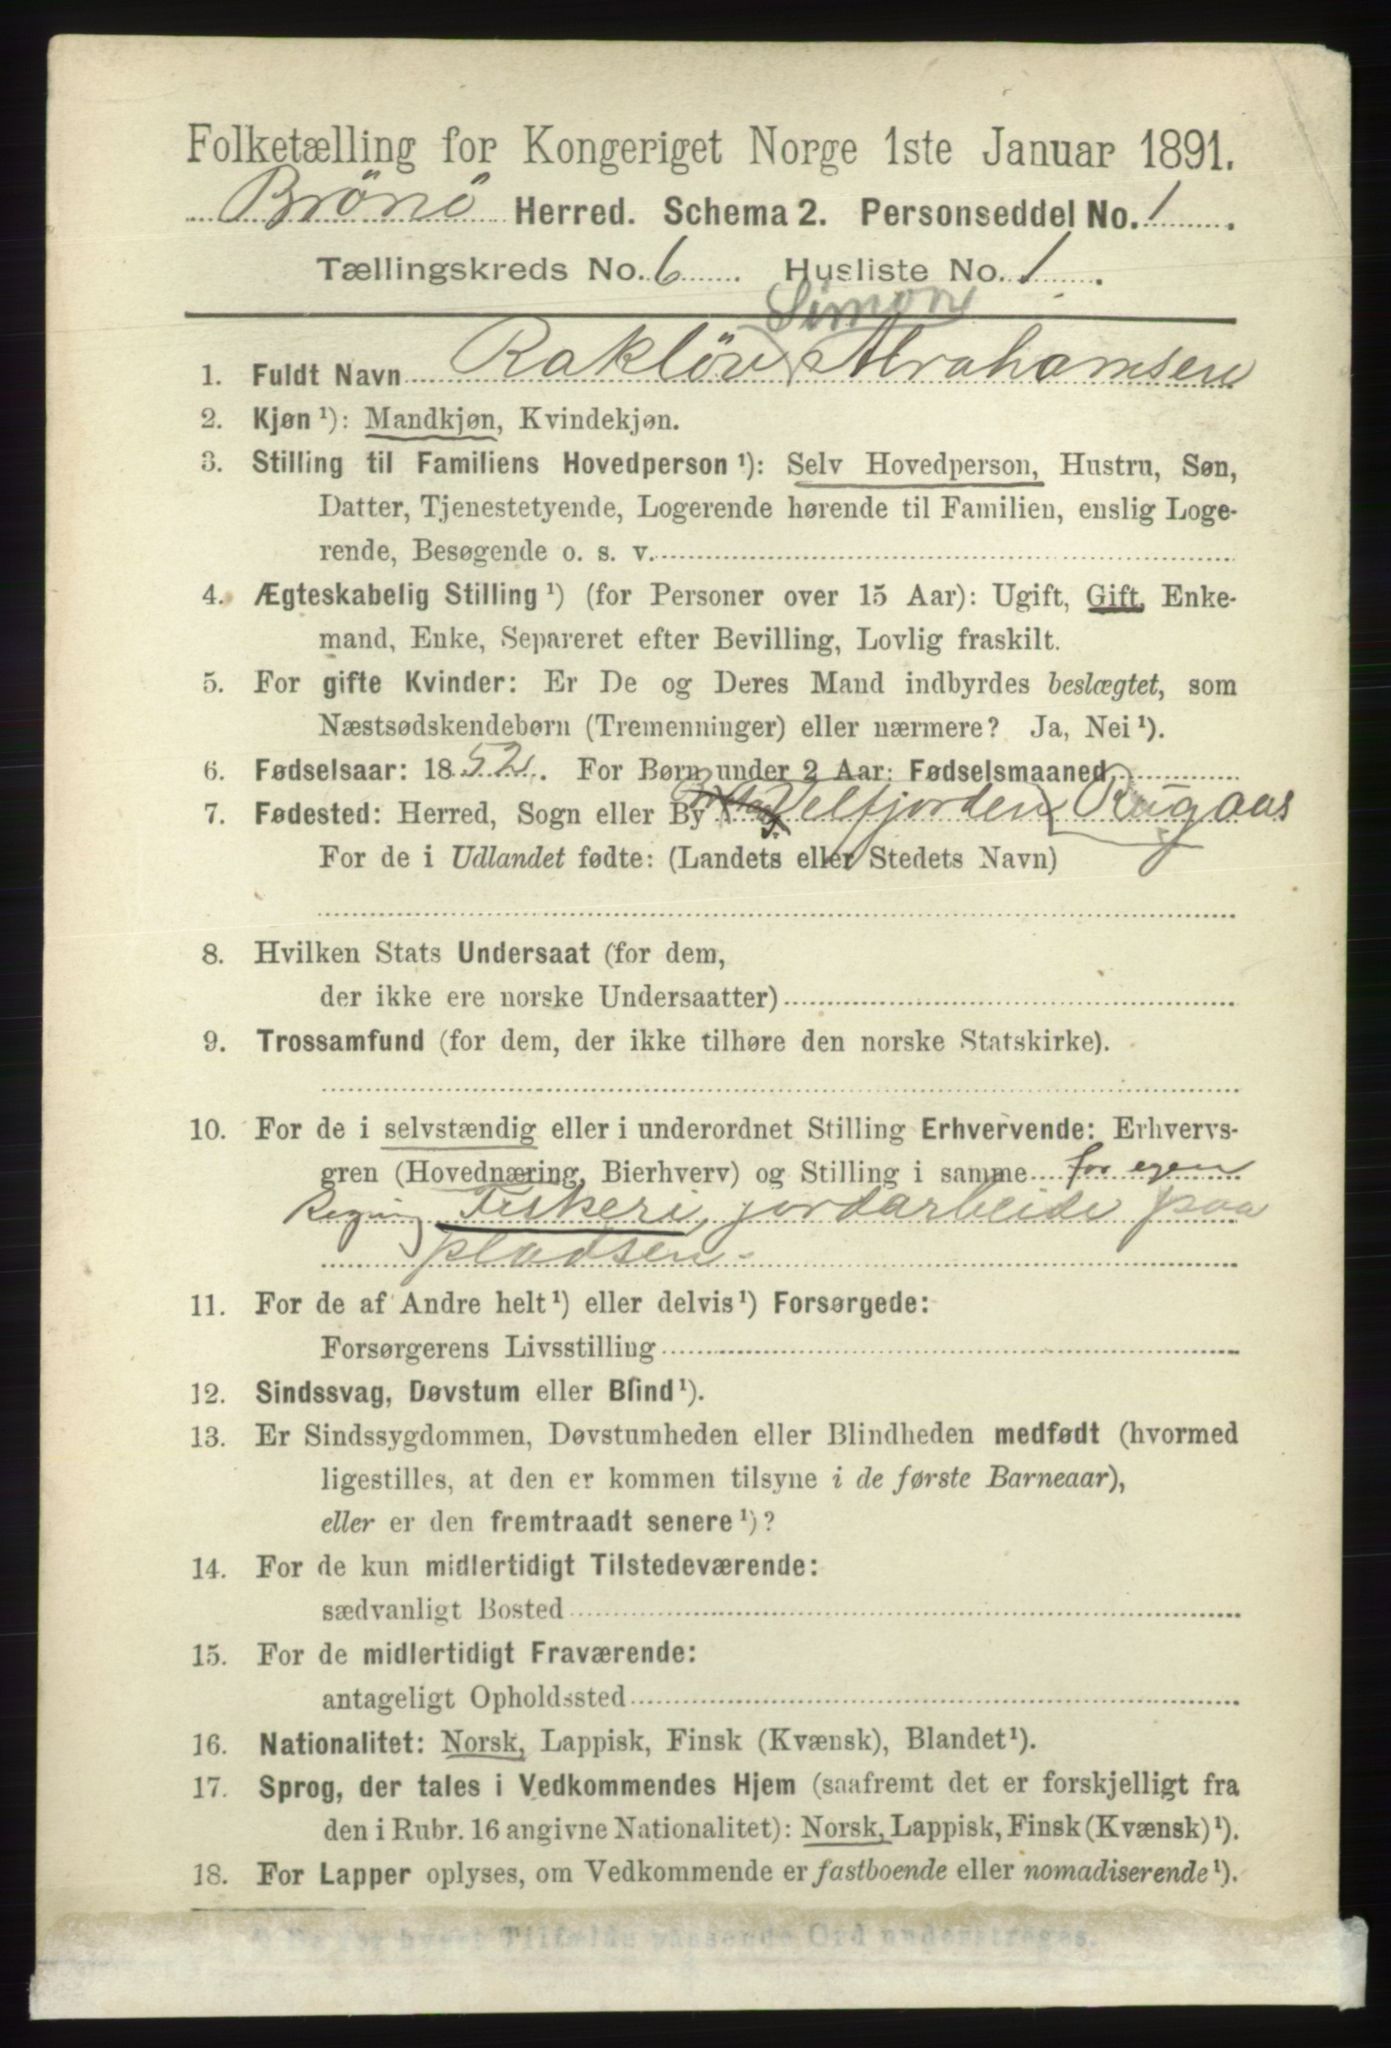 Folketælling for Kongeriget Norge 1ste Januar 1891.
Brönö Herred. Schema 2. Personseddel No. 1.
Tællingskreds No. 6. Husliste No. 1.
Simon
1. Fuldt Navn Raklöv Abrahamsen
2. Kjøn ¹): Mandkjøn, Kvindekjøn.
3. Stilling til Familiens Hovedperson ¹): Selv Hovedperson, Hustru, Søn,
Datter, Tjenestetyende, Logerende hørende til Familien, enslig Loge-
rende, Besøgende o. s. v.
4. Ægteskabelig Stilling ¹) (for Personer over 15 Aar): Ugift, Gift, Enke-
mand, Enke, Separeret efter Bevilling, Lovlig fraskilt.
5. For gifte Kvinder: Er De og Deres Mand indbyrdes beslægtet, som
Næstsødskendebørn (Tremenninger) eller nærmere? Ja, Nei ¹).
6. Fødselsaar: 1852. For Børn under 2 Aar: Fødselsmaaned
7. Fødested: Herred, Sogn eller By Velfjorden Rugaas
For de i Udlandet fødte: (Landets eller Stedets Navn)
8. Hvilken Stats Undersaat (for dem,
der ikke ere norske Undersaatter)
9. Trossamfund (for dem, der ikke tilhøre den norske Statskirke).
10. For de i selvstændig eller i underordnet Stilling Erhvervende: Erhvervs-
gren (Hovednæring, Bierhverv) og Stilling i samme for egen
Regning Fiskeri, jordarbeide paa
pladsen.
11. For de af Andre helt ¹) eller delvis ¹) Forsørgede:
Forsørgerens Livsstilling
12. Sindssvag, Døvstum eller Blind ¹).
13. Er Sindssygdommen, Døvstumheden eller Blindheden medfødt (hvormed
ligestilles, at den er kommen tilsyne i de første Barneaar),
eller er den fremtraadt senere ¹)?
14. For de kun midlertidigt Tilstedeværende:
sædvanligt Bosted
15. For de midlertidigt Fraværende:
antageligt Opholdssted
16. Nationalitet: Norsk, Lappisk, Finsk (Kvænsk), Blandet ¹).
17. Sprog, der tales i Vedkommendes Hjem (saafremt det er forskjelligt fra
den i Rubr. 16 angivne Nationalitet): Norsk, Lappisk, Finsk (Kvænsk) ¹).
18. For Lapper oplyses, om Vedkommende er fastboende eller nomadiserende ¹).
¹) De for hvert Tilfælde passende Ord understreges.